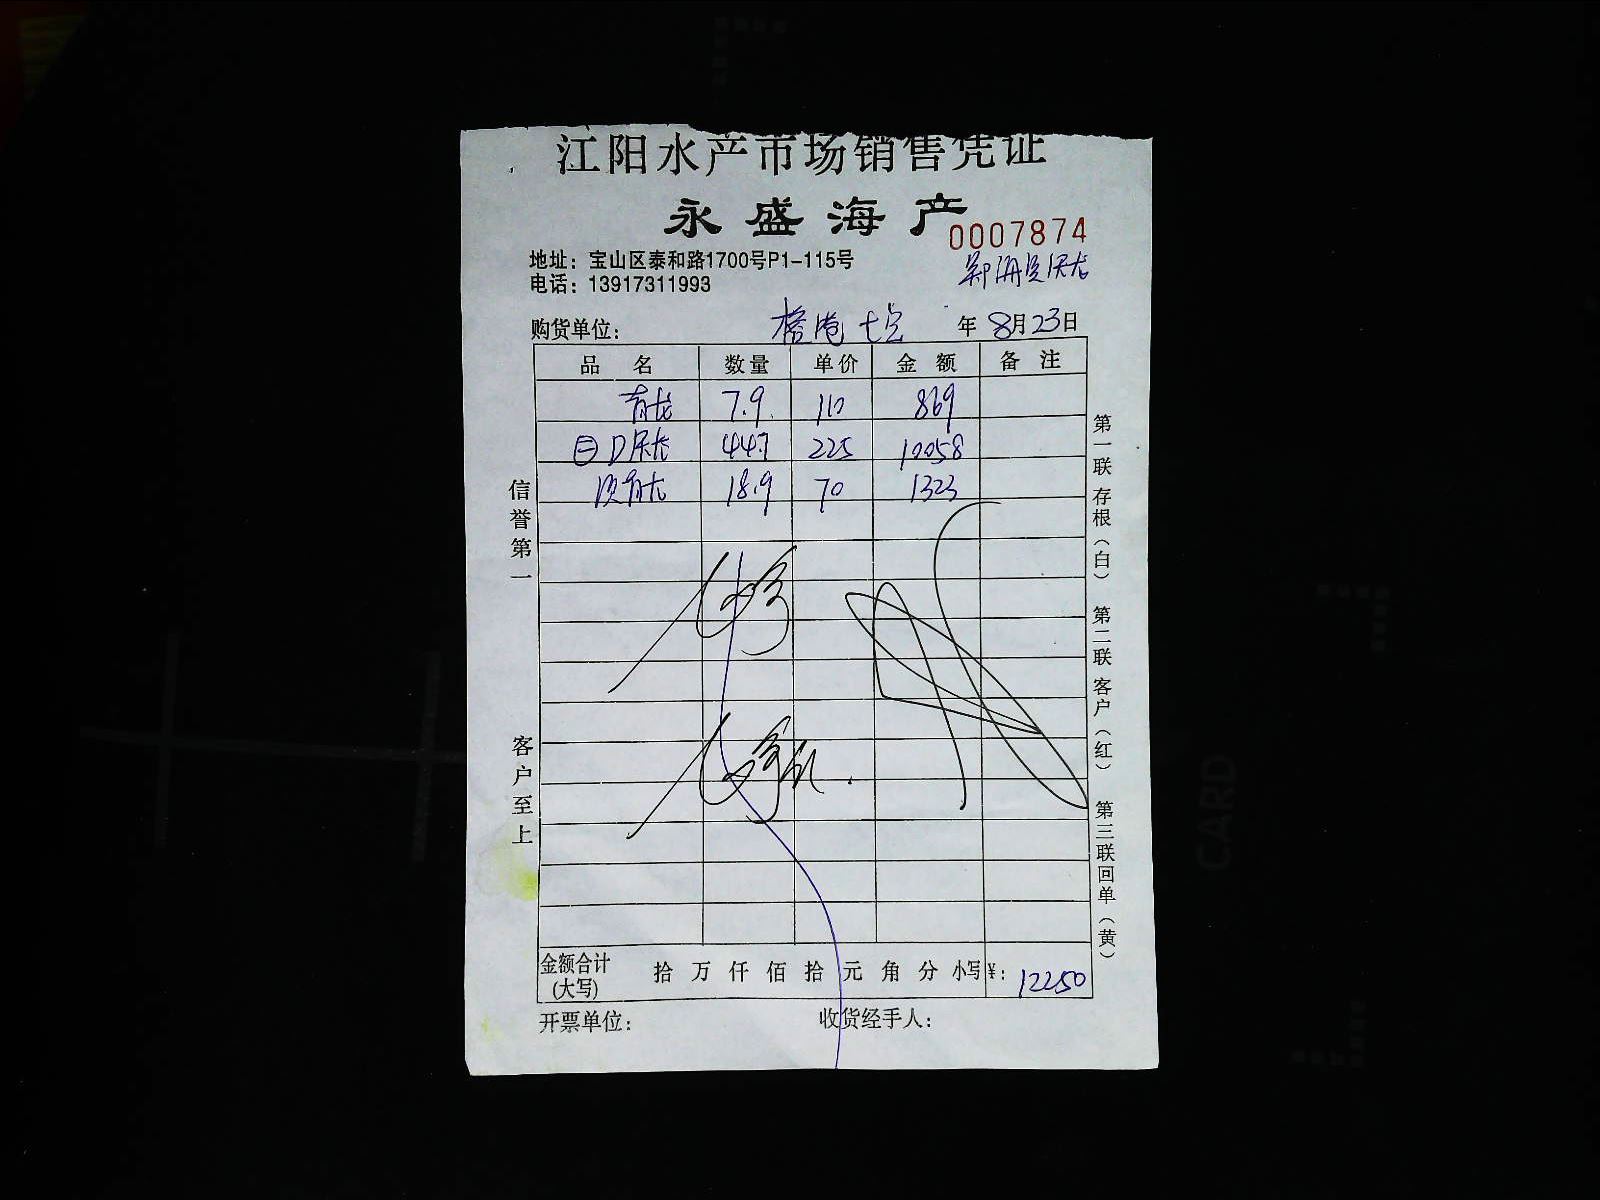 江阳水产市场销售凭证
永盛海产
0007874
地址：宝山区泰和路1700号P1-115号
电话：13917311993
购货单位： 年 8月23日
品 名 数量 单价 金 额 备 注
青龙 7.9 110 869
44.7 225 10058
18.9 70 1323
信誉第一
客户至上
第一联 存根（白） 第二联 客户（红） 第三联 回单（黄）
金额合计 拾 万 仟 佰 拾 元 角 分 小写¥： 12250
(大写)
开票单位： 收货经手人：